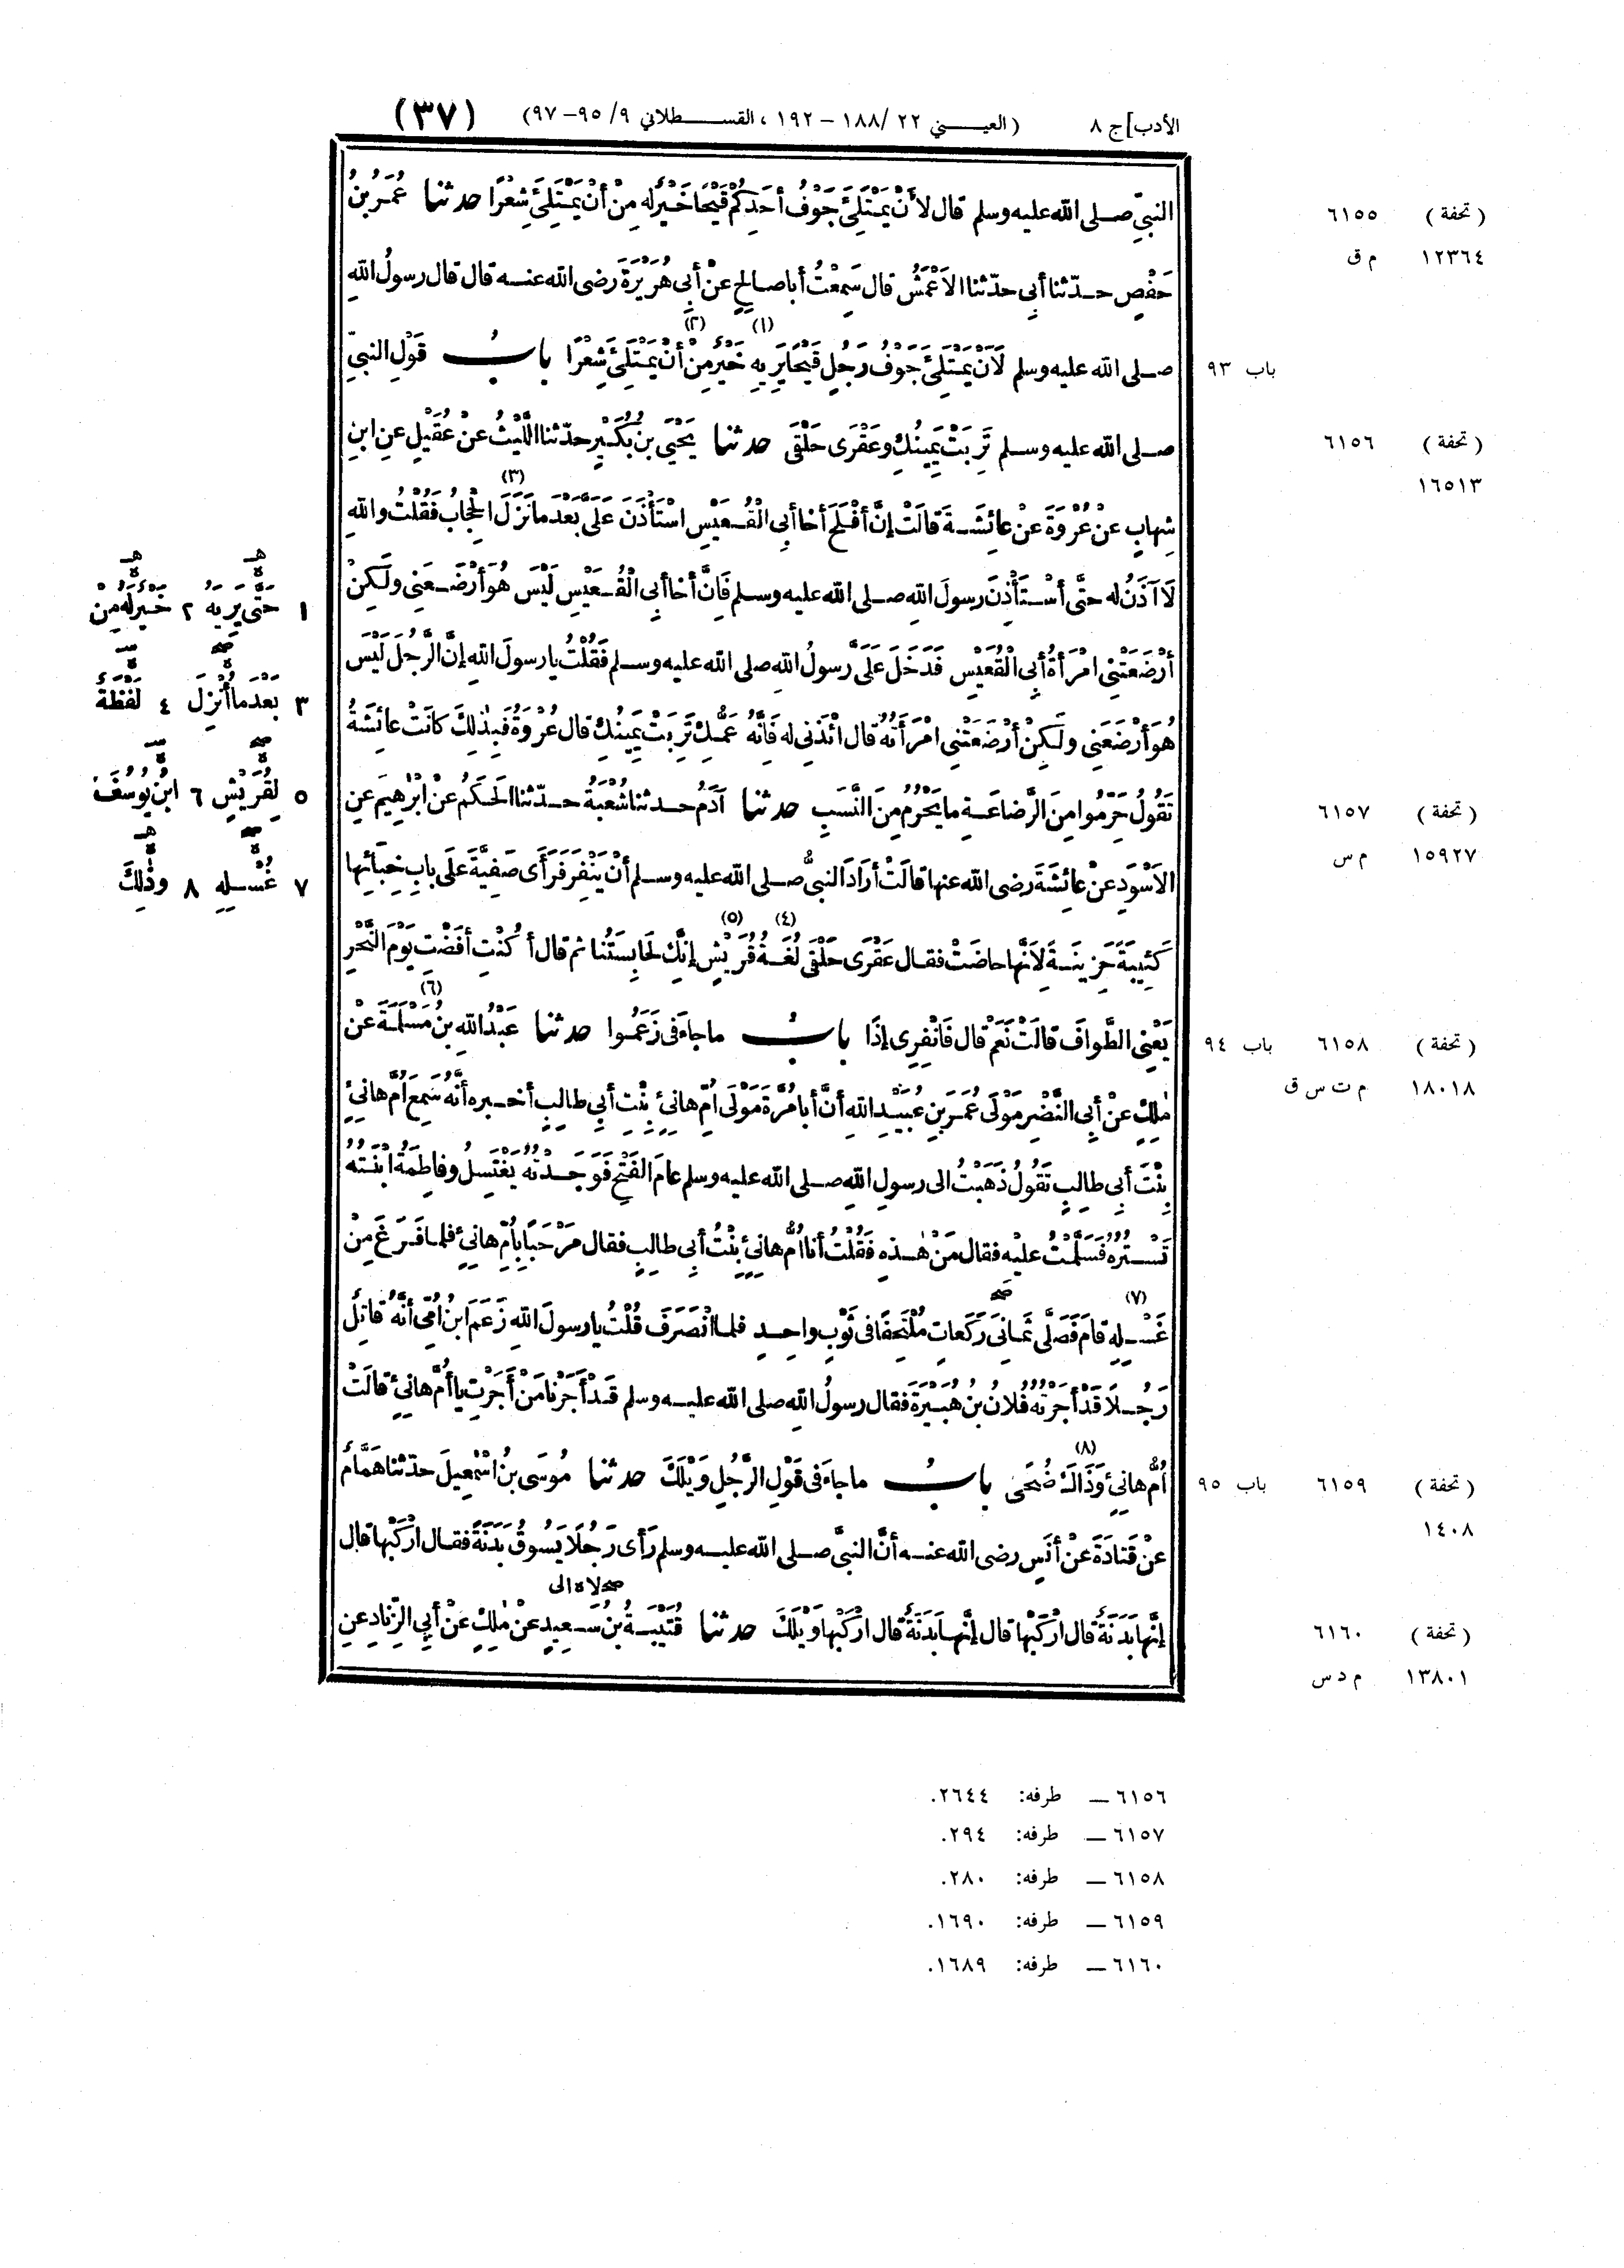 الأدب] ج ٨ (العيني ٢٢/ ١٨٨ – ١٩٢ ، القسطلاني ٩/ ٩٥ – ٩٧) (٣٧)
النبيِّ صلى الله عليه وسلم قال لأَنْ يَمْتَلِئَ جَوْفُ أَحَدِكُمْ قَيْحًا خَيْرٌ لَهُ مِنْ أَنْ يَمْتَلِئَ شِعْرًا حدثنا عُمَرُ بنُ
حَفْصٍ حدّثنا أبي حدّثنا الأَعْمَشُ قال سَمِعْتُ أبا صالحٍ عنْ أبي هُرَيْرَةَ رضى الله عنه قال قال رسولُ اللهِ
صلى الله عليه وسلم لَأَنْ يَمْتَلِئَ جَوْفُ رَجُلٍ قَيْحًا يَرِيهِ (١) خَيْرٌ مِنْ (٢) أَنْ يَمْتَلِئَ شِعْرًا بابُ قَوْلِ النبيِّ
صلى الله عليه وسلم تَرِبَتْ يَمِينُكِ وعَقْرَى حَلْقَى حدثنا يَحْيَى بنُ بُكَيْرٍ حدّثنا اللَّيْثُ عنْ عُقَيْلٍ عنِ ابنِ
شِهابٍ عنْ عُرْوَةَ عنْ عائِشَةَ قالَتْ إنَّ أَفْلَحَ أخا أبي الْقُعَيْسِ اسْتَأْذَنَ عَلَىَّ بَعْدَ ما نَزَلَ (٣) الحِجابُ فَقُلْتُ واللهِ
لَا آذَنُ له حتَّى أَسْتَأْذِنَ رسولَ اللهِ صلى الله عليه وسلم فَإنَّ أخا أبي الْقُعَيْسِ لَيْسَ هُوَ أَرْضَعَنِي ولَكِنْ
أَرْضَعَتْنِي امْرَأَةُ أبي الْقُعَيْسِ فَدَخَلَ عَلَىَّ رسولُ اللهِ صلى الله عليه وسلم فَقُلْتُ يا رسولَ اللهِ إنَّ الرَّجُلَ لَيْسَ
هُوَ أَرْضَعَنِي ولَكِنْ أَرْضَعَتْنِي امْرَأَتُهُ قال ائْذَنِي له فَانَّهُ عَمُّكِ تَرِبَتْ يَمِينُكِ قال عُرْوَةُ فَبِذٰلِكَ كانَتْ عائِشَةُ
تَقُولُ حَرِّمُوا مِنَ الرَّضاعَةِ ما يَحْرُمُ مِنَ النَّسَبِ حدثنا آدَمُ حدثنا شُعْبَةُ حدّثنا الحَكَمُ عنْ ابْرٰهِيمَ عنِ
الأَسْوَدِ عنْ عائِشَةَ رضى الله عنها قالَتْ أَرَادَ النبيُّ صلى الله عليه وسلم أنْ يَنْفِرَ فَرَأَى صَفِيَّةَ عَلَى بابِ خِبَائِها
كَئِيبَةً حَزِينَةً لأَنَّها حاضَتْ فقال عَقْرَى حَلْقَى لُغَةُ (٤) قُرَيْشٍ (٥) إنَّكِ لَحابِسَتُنا ثم قال أ كُنْتِ أَفَضْتِ يَوْمَ النَّحْرِ
يَعْنِي الطَّوافَ قالَتْ نَعَمْ قال فَانْفِرِى إذًا بابُ ما جاءَ فى زَعَمُوا حدثنا عَبْدُ اللهِ بنُ مَسْلَمَةَ (٦) عنْ
مٰلِكٍ عنْ أبي النَّضْرِ مَوْلَى عُمَرَ بنِ عُبَيْدِ اللهِ أنَّ أبا مُرَّةَ مَوْلَى أُمِّ هانِئٍ بِنْتِ أبي طالِبٍ أخبره أنَّهُ سَمِعَ أُمَّ هانِئٍ
بِنْتَ أبي طالِبٍ تَقُولُ ذَهَبْتُ الى رسولِ اللهِ صلى الله عليه وسلم عامَ الفَتْحِ فَوَجَدْتُهُ يَغْتَسِلُ وفاطِمَةُ ابْنَتُهُ
تَسْتُرُهُ فَسَلَّمْتُ عليه فقال مَنْ هٰذِهِ فَقُلْتُ أنا أُمُّ هانِئٍ بِنْتُ أبي طالِبٍ فقال مَرْحَبًا بِأُمِّ هانِئٍ فلما فَرَغَ مِنْ
غَسْلِهِ (٧) قامَ فَصَلَّى ثمَانِىَ رَكَعاتٍ مُلْتَحِفًا فى ثَوْبٍ واحِدٍ فلما انْصَرَفَ قُلْتُ يا رسولَ اللهِ زَعَمَ ابنُ أُمِّي أَنَّهُ قاتِلٌ
رَجُلًا قَدْ أَجَرْتُهُ فُلَانُ بنُ هُبَيْرَةَ فقال رسولُ اللهِ صلى الله عليه وسلم قَدْ أَجَرْنا مَنْ أَجَرْتِ يا أُمَّ هانِئٍ قالَتْ
أُمُّ هانِئٍ وَذَاكَ (٨) ضُحًى بابُ ما جاءَ فى قَوْلِ الرَّجُلِ وَيْلَكَ حدثنا مُوسَى بنُ اسْمٰعِيلَ حدّثنا هَمَّامٌ
عنْ قَتادَةَ عنْ أَنَسٍ رضى الله عنه أنَّ النبيَّ صلى الله عليه وسلم رَأَى رَجُلًا يَسُوقُ بَدَنَةً فقال ارْكَبْها قال
إنَّها بَدَنَةٌ قال ارْكَبْها قال إنَّها بَدَنَةٌ قال ارْكَبْها وَيْلَكَ حدثنا قُتَيْبَةُ بنُ سَعِيدٍ عنْ مٰلِكٍ عنْ أبي الزِّنادِ عنِ
٦١٥٥ (تحفة)
م ق ١٢٣٦٤
باب ٩٣
٦١٥٦ (تحفة)
١٦٥١٣
٦١٥٧ (تحفة)
م س ١٥٩٢٧
باب ٩٤ ٦١٥٨ (تحفة)
م ت س ق ١٨٠١٨
باب ٩٥ ٦١٥٩ (تحفة)
١٤٠٨
٦١٦٠ (تحفة)
م د س ١٣٨٠١
١ حَتَّى يَرِيَهُ ٢ خَيْرٌ لَهُ مِنْ
٣ بَعْدَ ما أُنْزِلَ ٤ لَفْظَةٌ
٥ لِقُرَيْشٍ ٦ ابنُ يُوسُفَ
٧ غُسْلِهِ ٨ وذٰلِكَ
٦١٥٦ — طرفه: ٢٦٤٤.
٦١٥٧ — طرفه: ٢٩٤.
٦١٥٨ — طرفه: ٢٨٠.
٦١٥٩ — طرفه: ١٦٩٠.
٦١٦٠ — طرفه: ١٦٨٩.